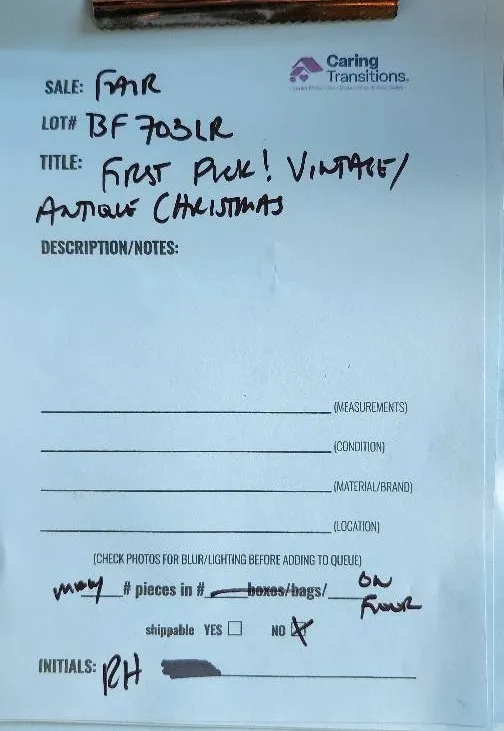 Caring
Transitions.
SALE: FAIR
LOT# BF 703LR
TITLE: FIRST PICK! VINTAGE/
ANTIQUE CHRISTMAS
DESCRIPTION/NOTES:
(MEASUREMENTS)
(CONDITION)
(MATERIAL/BRAND)
(LOCATION)
(CHECK PHOTOS FOR BLUR/LIGHTING BEFORE ADDING TO QUEUE)
many # pieces in # boxes/bags/ ON
FLOOR
shippable YES NO X
INITIALS: RH